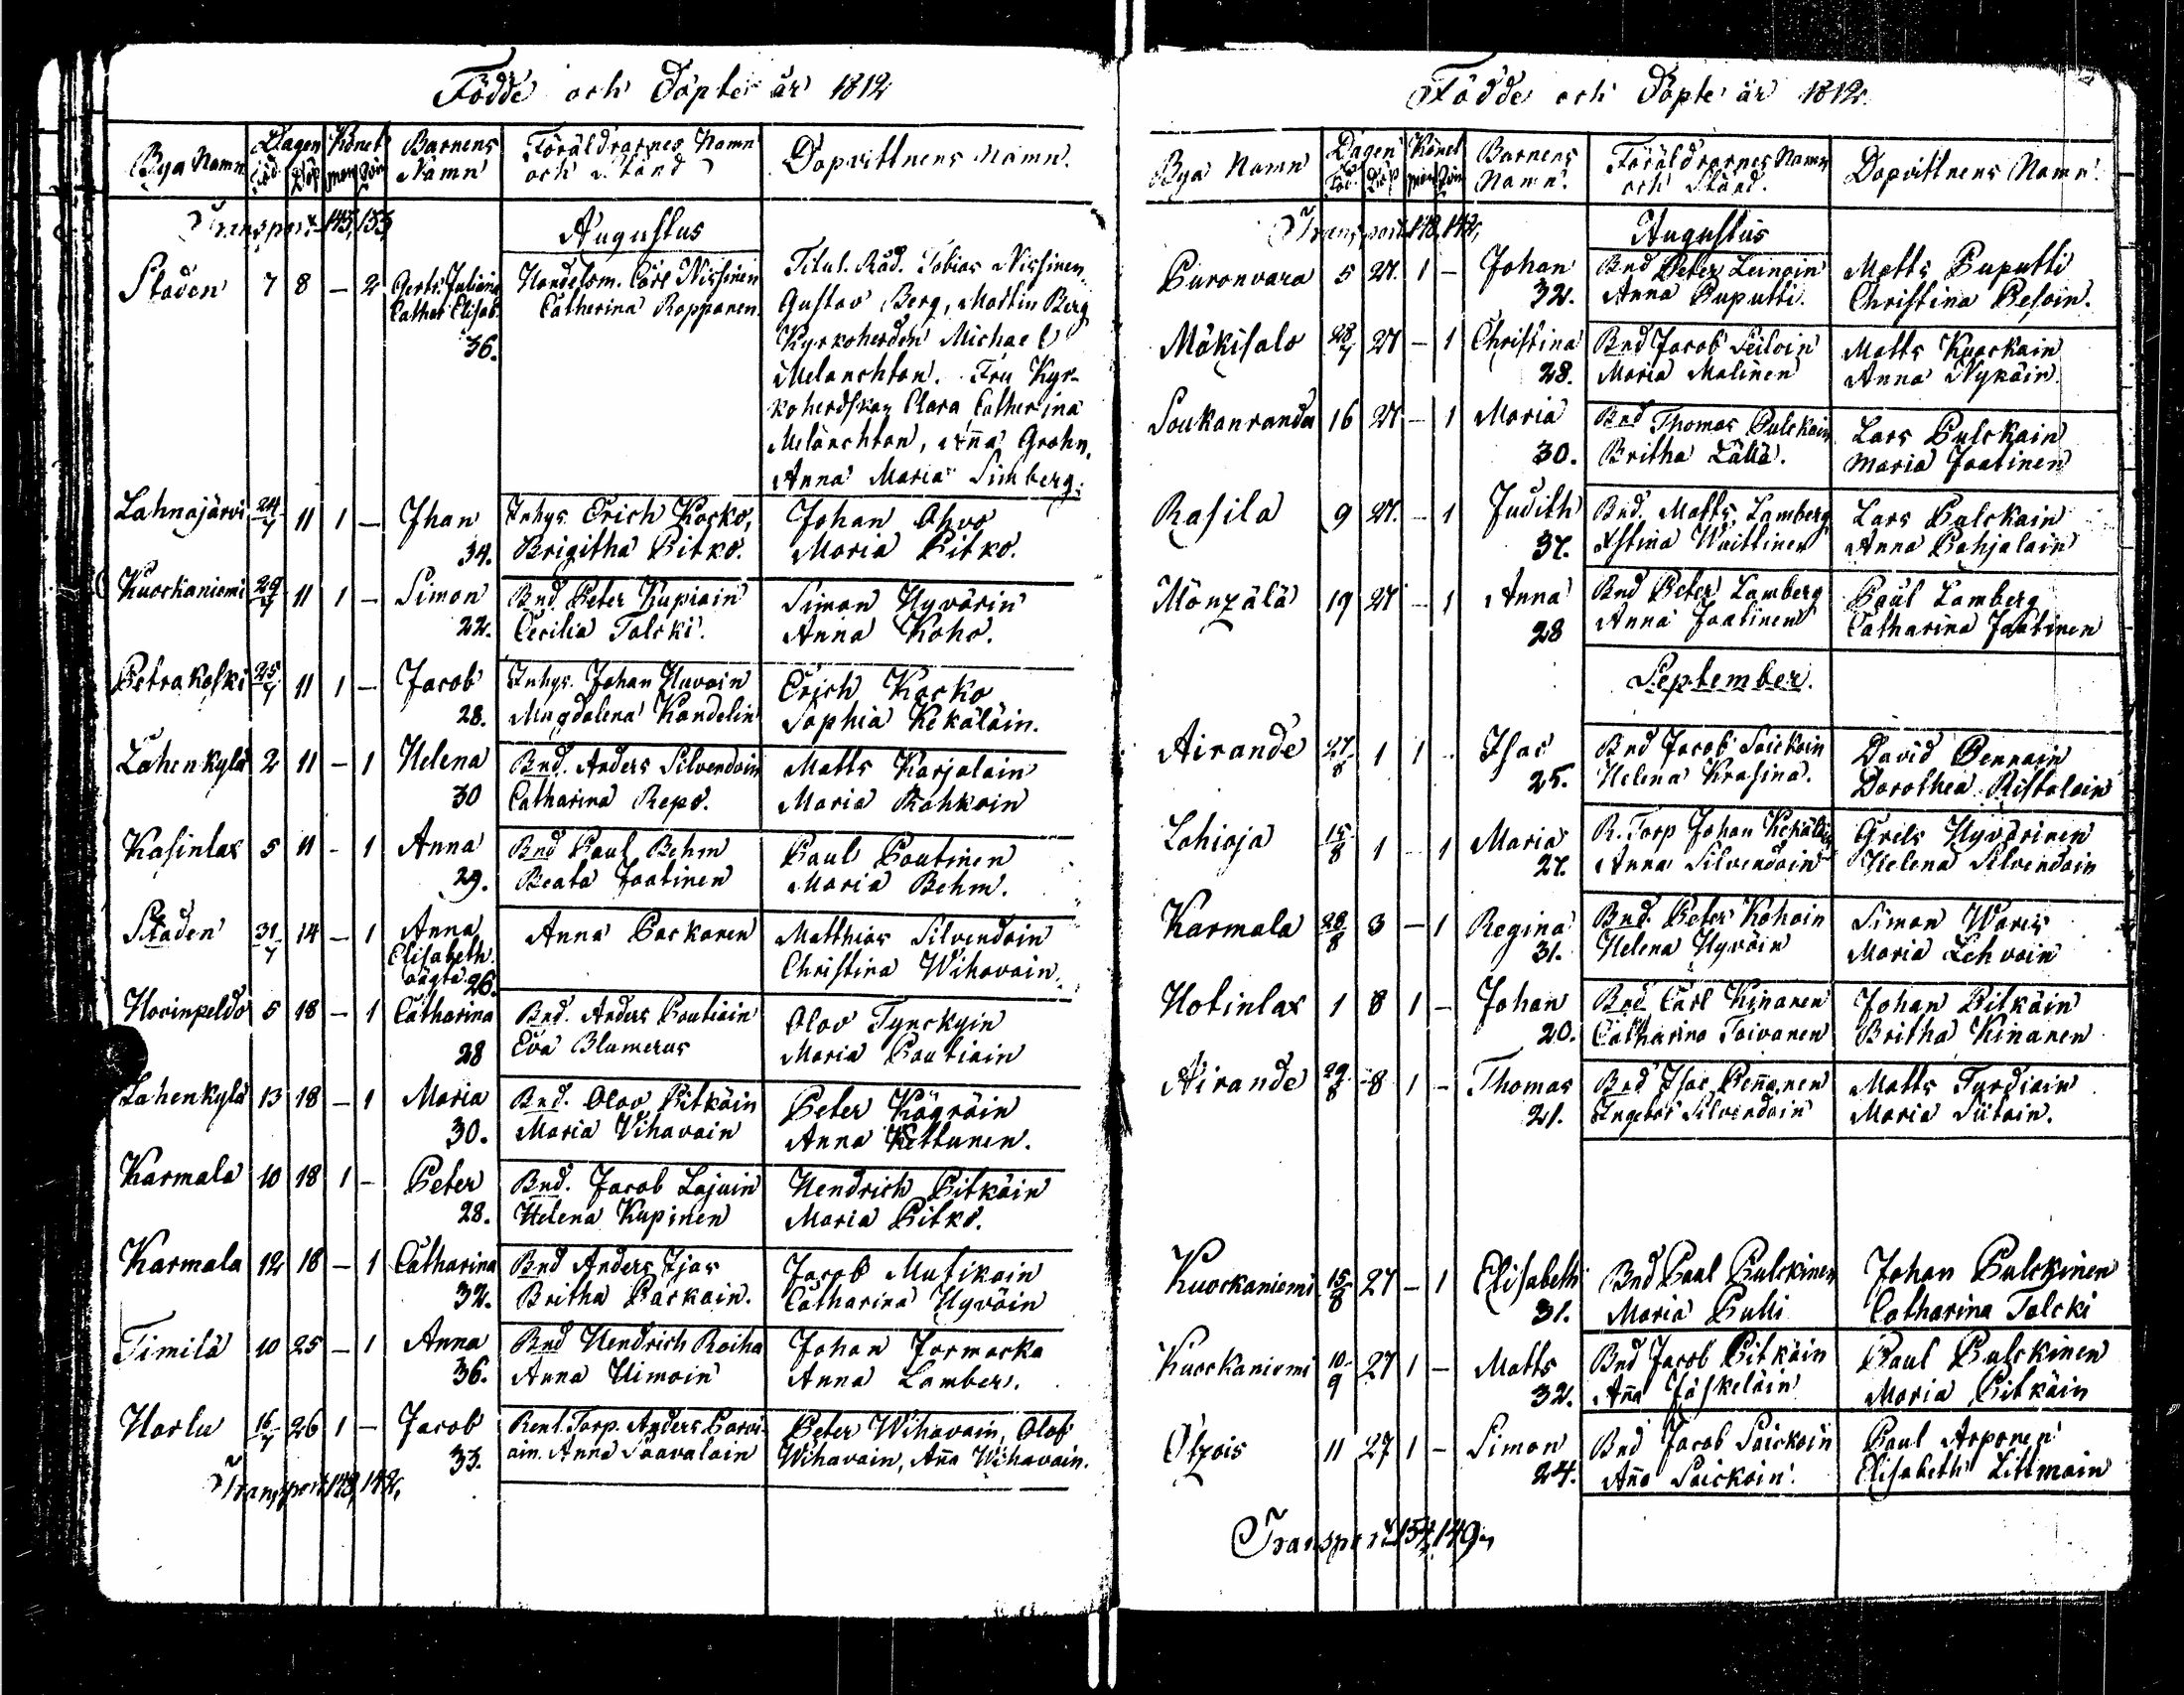 Födde och Döpte år 1812
Bya Namn Dagen Könet Barnens Namn Föräldrarnes Namn och Stånd Dopvittnens Namn.
Föd. Döp. man qvin
Transport 143, 133,
Augustus
Staden 7 8 – 2 Gertr. Juliana Handelsm. Carl Nissinen Titul. Råd. Tobias Nissinen
Cathar Elisab. Catherina Ropponen. Gustav Berg, Martin Berg
36. Kyrkoherden Michael
Melanchton. Fru Kyr-
koherdskan Clara Catherina
Melanchton, Anna Grohn,
Anna Maria Simberg.
Lahnajärvi 24/7 11 1 – Jhan Inhys. Erich Kocko, Johan Ahvo
34. Brigitha Pitko. Maria Pitko.
Kuockaniemi 29/7 11 1 – Simon Bnd. Peter Kupiain Simon Hyvärin
22. Cecilia Talcki. Anna Koho.
Petrakoski 25/7 11 1 – Jacob Inhys. Johan Huvain Erich Kocko
28. Magdalena Kandelin Sophia Kekäläin.
Lahenkylä 2 11 – 1 Helena Bnd. Anders Silvendain Matts Karjalain
30 Catharina Repo. Maria Rahkain
Kasinlax 5 11 – 1 Anna Bnd Paul Behm Paul Poutinen
29. Beata Jaatinen Maria Behm.
Staden 31/7 14 – 1 Anna Anna Packanen Matthias Silvendain
Elisabeth. Christina Wihavain.
oägta 26.
Hovinpeldo 5 18 – 1 Catharina Bnd. Anders Poutiain Olov Tynckyin
28 Eva Blumerus Maria Poutiain
Lahenkylä 13 18 – 1 Maria Bnd. Olov Pitkäin Peter Käyräin
30. Maria Vihavain Anna Kettunen.
Karmala 10 18 1 – Peter Bnd. Jacob Lajuin Hendrich Pitkäin
28. Helena Kupinen Maria Pitko.
Karmala 12 18 – 1 Catharina Bnd Anders Ijas Jacob Mutikain
32. Britha Packain. Catharina Hyväin
Timilä 10 25 – 1 Anna Bnd Hendrich Roiha Johan Jormacka
36. Anna Himain Anna Lamber.
Harlu 16/7 26 1 – Jacob Rent. Torp. Anders Parvi- Peter Wihavain, Olof
33. ain. Anna Saavalain Wihavain, Aña Wihavain.
Transport 148, 142,
Födde och Döpte år 1812.
Bya Namn Dagen Könet Barnens Namn. Föräldrarnes Namn och Stånd. Dopvittnens Namn.
Föd. Döp man qvin
Transport 148, 142,
Augustus
Puronvara 5 27. 1 – Johan Bnd Peter Leinoin Matts Puputti
32. Anna Puputti. Christina Pesoin.
Mäkisalo 28/7 27 – 1 Christina Bnd Jacob Seiloin Matts Kuockain
28. Maria Malinen Anna Nykäin.
Soukanranda 16 27 – 1 Maria Bnd Thomas Pulckain Lars Pulckain
30. Britha Lätiä. Maria Jaatinen
Rasila 9 27. – 1 Judith Bnd. Matts Lamberg Lars Pulckain
37. Xstina Waittinen Anna Pohjalain
Mönzälä 19 27 – 1 Anna Bnd Peter Lamberg Paul Lamberg
28 Anna Jaatinen Catharina Jaatinen
September.
Airande 27/8 1 1 – Isac Bnd Jacob Saickoin David Pennain
25. Helena Krasina. Dorothea Ristolain
Lahioja 15/8 1 – 1 Maria R. Torp Johan Kekäläin Grels Hyvärinen
27. Anna Silvendain Helena Silvendain
Karmala 28/8 3 – 1 Regina Bnd. Peter Kohoin Simon Wares
31. Helena Hyväin Maria Lehvoin
Hotinlax 1 8 1 – Johan Bnd Carl Kinanen Johan Pitkäin
20. Catharina Toivanen Britha Kinanen
Airande 29/8 8 1 – Thomas Bnd Isac Peñanen Matts Turdiain
21. Ingebor Silvendain Maria Siitoin.
Kuockaniemi 15/8 27 – 1 Elisabeth Bnd Paul Pulckinen Johan Pulckinen
31. Maria Pulli Catharina Talcki
Kuockaniemi 10/9 27 1 – Matts Bnd Jacob Pitkäin Paul Pulckinen
32. Aña Jäskeläin Maria Pitkäin
Otzois 11 27 1 – Simon Bnd Jacob Saickoin Paul Arponen
24. Aña Saickoin. Elisabeth Littmain
Transport 154, 149,